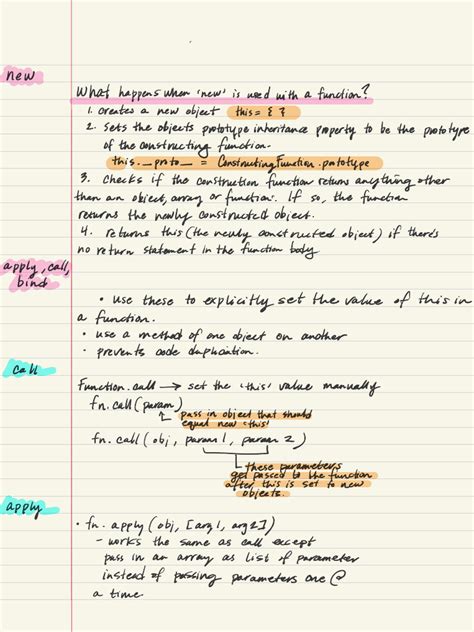 new
What happens when 'new' is used with a function?
1. creates a new object this = { }
2. sets the objects prototype inheritance property to be the prototype
of the constructing function.
this.__proto__ = ConstructingFunction.prototype
3. checks if the construction function returns anything other
than an object, array or function. If so, the function
returns the newly constructed object.
4. returns this (the newly constructed object) if there's
no return statement in the function body
apply, call,
bind
• use these to explicitly set the value of this in
a function.
• use a method of one object on another
• prevents code duplication.
call
Function.call → set the 'this' value manually
fn.call(param)
pass in object that should
equal new 'this'
fn.call(obj, param1, param 2)
these parameters
get passed to the function
after this is set to new
objects.
apply
• fn.apply(obj, [arg1, arg2])
- works the same as call except
pass in an array as list of parameter
instead of passing parameters one @
a time